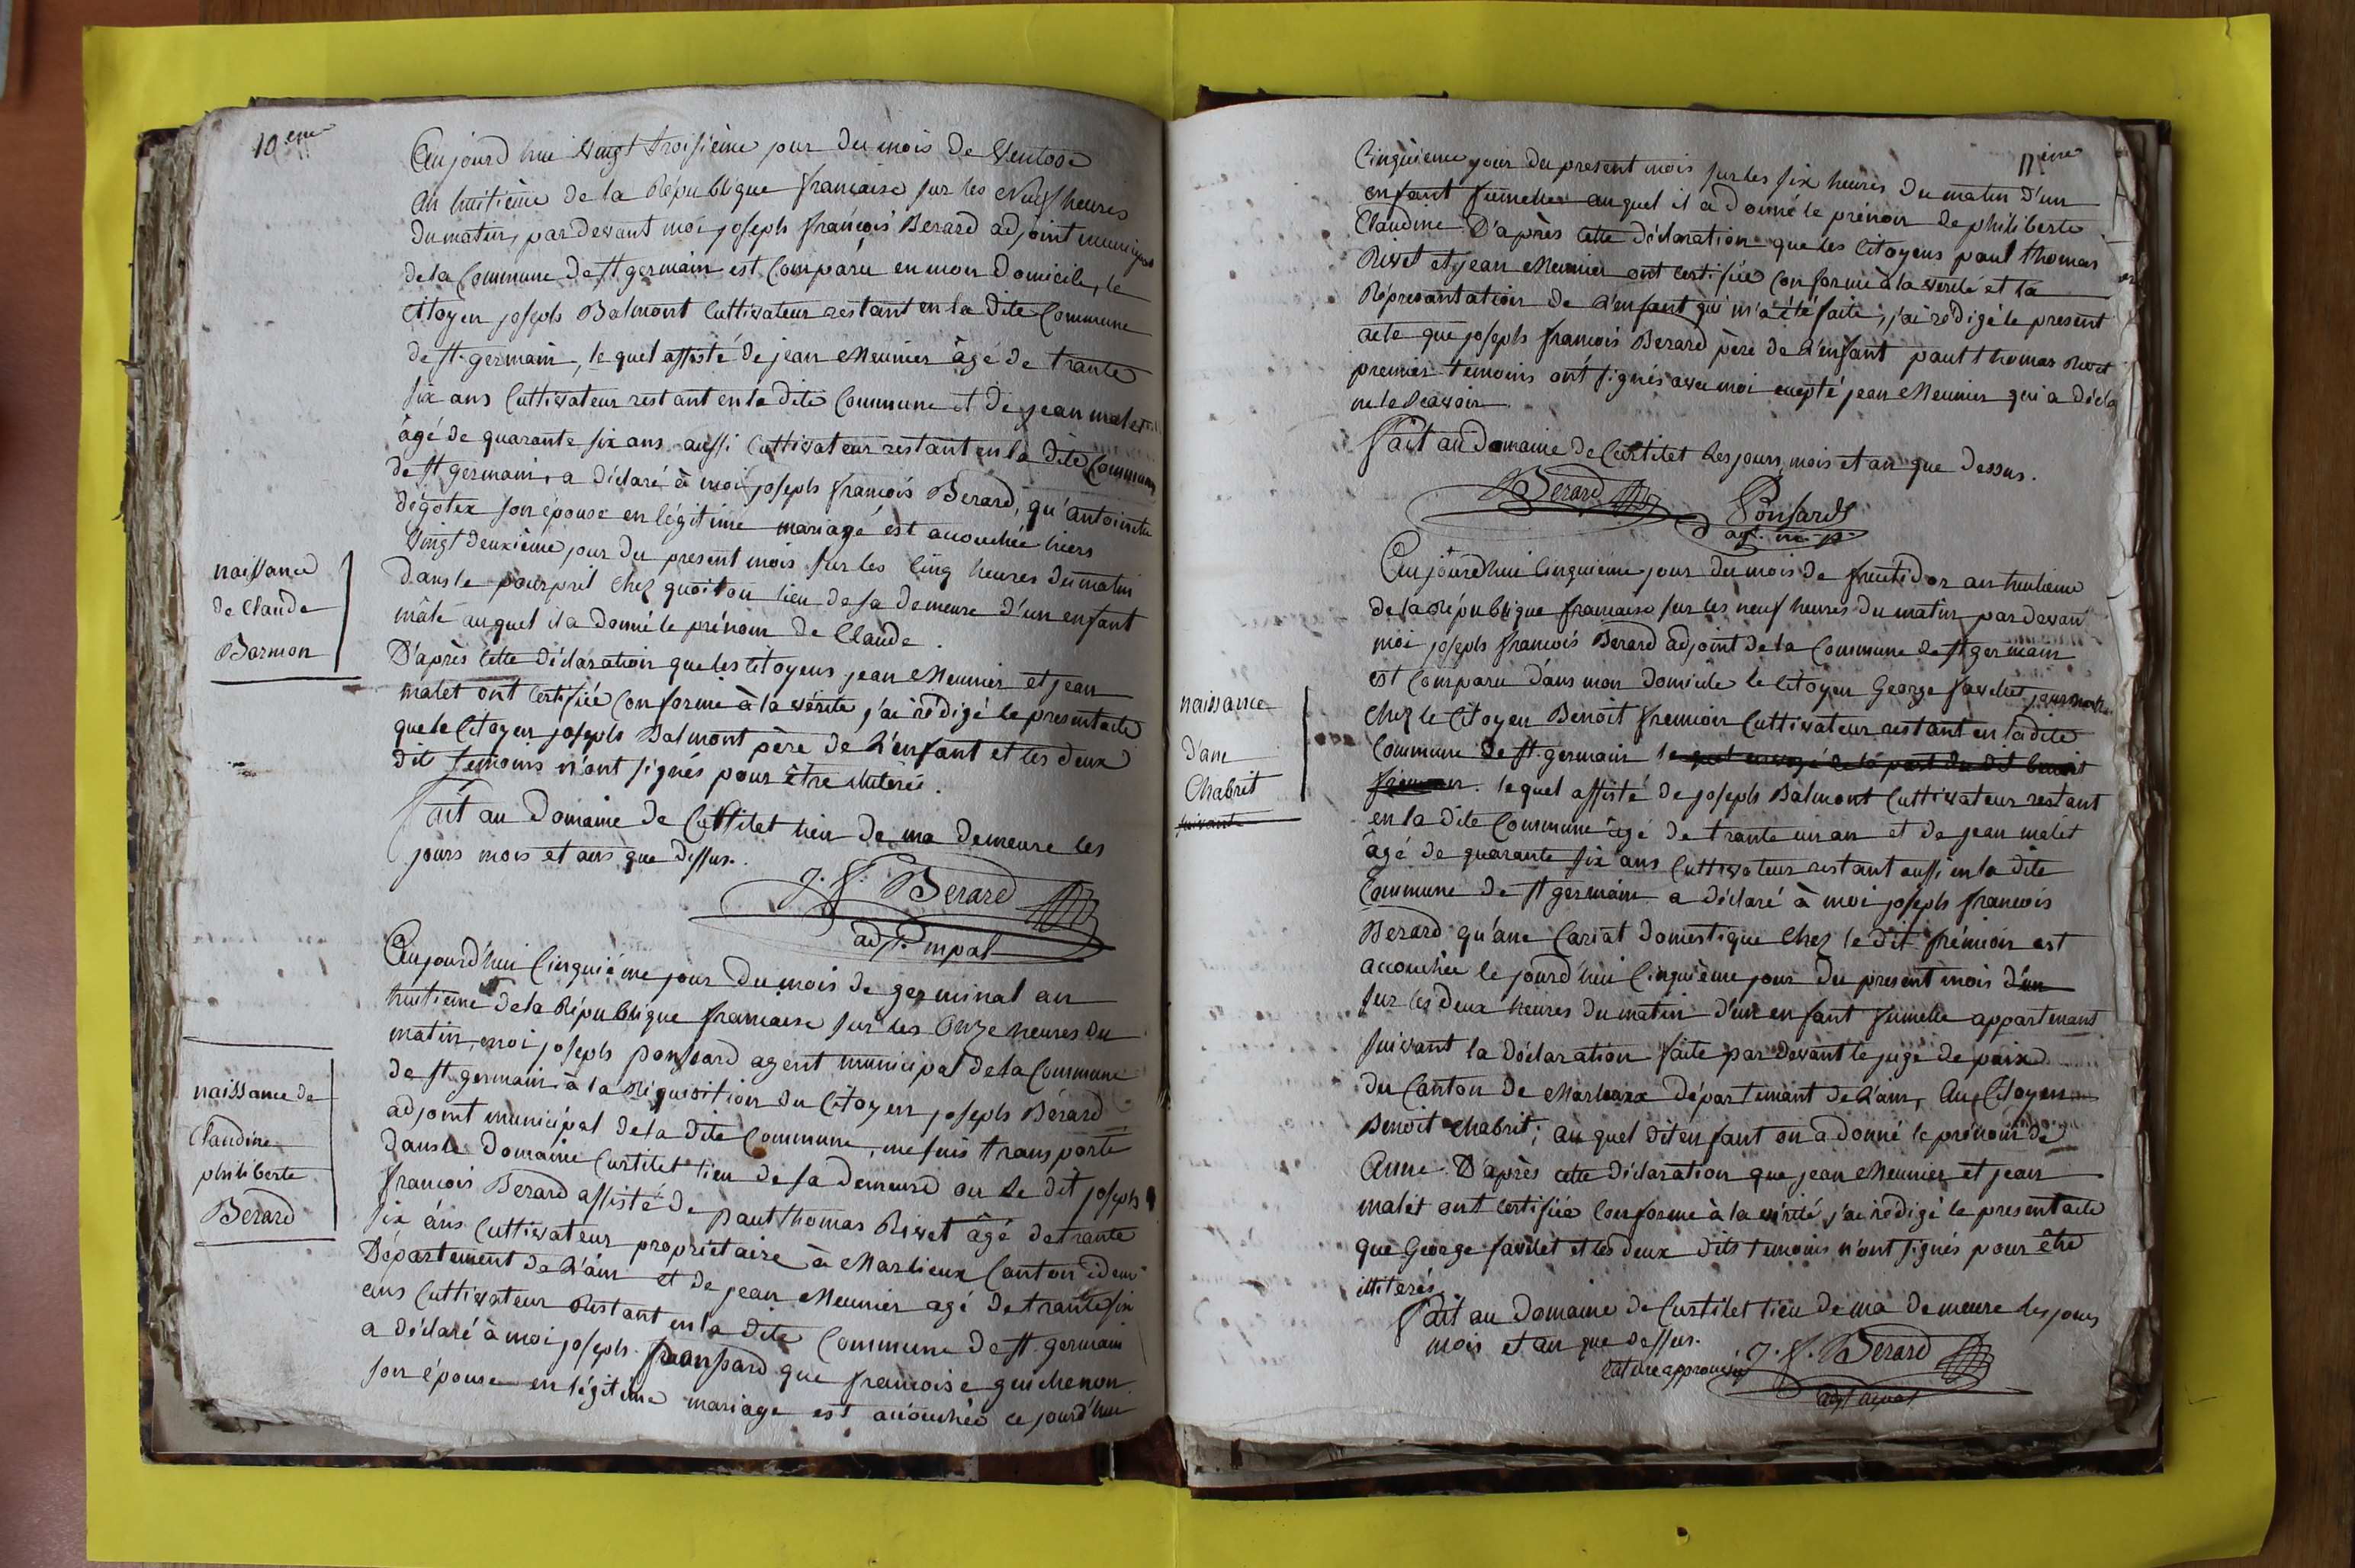 10.eme
Aujourd'hui vingt troisième jour du mois de Ventose
an huitième de la République française sur les Neuf heures
du matin, par devant moi joseph françois Berard adjoint municipal
de la Commune de st germain est Comparu en mon Domicile, le
Citoyen joseph Balmont Cultivateur restant en la dite Commune
de st. germain, lequel assisté de jean Meunier âgé de trante
six ans Cultivateur restant en la dite Commune et de jean malet
âgé de quarante six ans aussi Cultivateur restant en la dite Commune
de st germain, a déclaré à moi joseph françois Berard, qu'antoinette
dégotex son épouse en légitime mariage est accouchée hiers
Vingt deuxième jour du present mois sur les Cinq heures du matin
dans le pourpril chez lieu de sa demeure d'un enfant
mâle auquel il a donné le prénom de Claude.
D'après cette déclaration que les citoyens jean Meunier et jean
malet ont certifiée Conforme à la vérité j'ai rédigé le present acte
que le Citoyen joseph Balmont père de L'enfant et les deux
dits temoins n'ont signés pour être illiterés.
naissance
de Claude
Barmon
Fait au Domaine de Curtilet lieu de ma demeure les
jours mois et ans que dessus.
J. F. Berard
adj. mpal
Aujourd'hui Cinquième jour du mois de germinal an
huitieme de la République française sur les Onze heures du
matin, moi joseph ponsard agent municipal de la Commune
de st germain à la Réquisition du Citoyen joseph Bérard
adjoint municipal de la dite Commune, me suis transporté
dans le Domaine Curtilet lieu de sa demeure ou le dit joseph
françois Berard assisté de paul thomas Rivet âgé de trante
six ans Cultivateur propriétaire à Marlieux Canton idem
Département de L'ain et de jean Meunier agé de trante six
ans Cultivateur Restant en la dite Commune de st. germain
a déclaré à moi joseph ponsard que françoise guichenon
son épouse en légitime mariage est accouchée ce jourd'hui
naissance de
Claudine
philiberte
Berard
11.eme
Cinquième jour du present mois sur les six heures du matin d'un
enfant fumelle auquel il a donné le prénom de philiberte
Claudine. D'après cette déclaration que les Citoyens paul thomas
Rivet et jean Meunier ont certifiée conforme à la vérité et la
Répresantation de L'enfant qui m'a été faite, j'ai rédigé le present
acte que joseph françois Berard père de L'enfant paul thomas Rivet
premier temoins ont signés avec moi excepté jean Meunier qui a décla
ne le scavoir.
Fait au domaine de Curtilet les jours, mois et an que dessus.
Berard
Ponsard
agt. m. p.
Aujourd'hui Cinquième jour du mois de fructidor an huitieme
de la République française sur les neuf heures du matin par devant
moi joseph françois Berard adjoint de la Commune de st germain
est Comparu dans mon domicile le Citoyen George Savelet
chez le Citoyen Benoit fremion Cultivateur restant en la dite
Commune de st. germain lequel envoyé de la part du dit benoit
fremion. lequel assisté de joseph Balmont Cultivateur restant
en la dite Commune âgé de trante un an et de jean malet
âgé de quarante six ans Cultivateur restant aussi en la dite
Commune de st germain a déclaré à moi joseph françois
Berard qu'ane Cariat domestique chez le dit frémion est
accouchée le jourd'hui Cinquième jour du present mois d'un
sur les deux heures du matin d'un enfant fumelle appartenant
suivant la déclaration faite par devant le juge de paix
du Canton de Marlieux département de L'ain, Au Citoyen
Benoit Chabrit; auquel dit enfant on a donné le prénom de
Anne. D'après cette déclaration que jean Meunier et jean
malet ont certifiée Conforme à la vérité j'ai rédigé le present acte
que George Savelet et les deux dits temoins n'ont signés pour être
illiterés.
naissance
d'ane
Chabrit
suivante
Fait au Domaine de Curtilet lieu de ma demeure les jours
mois et an que dessus.
rature approuvée J. F. Berard